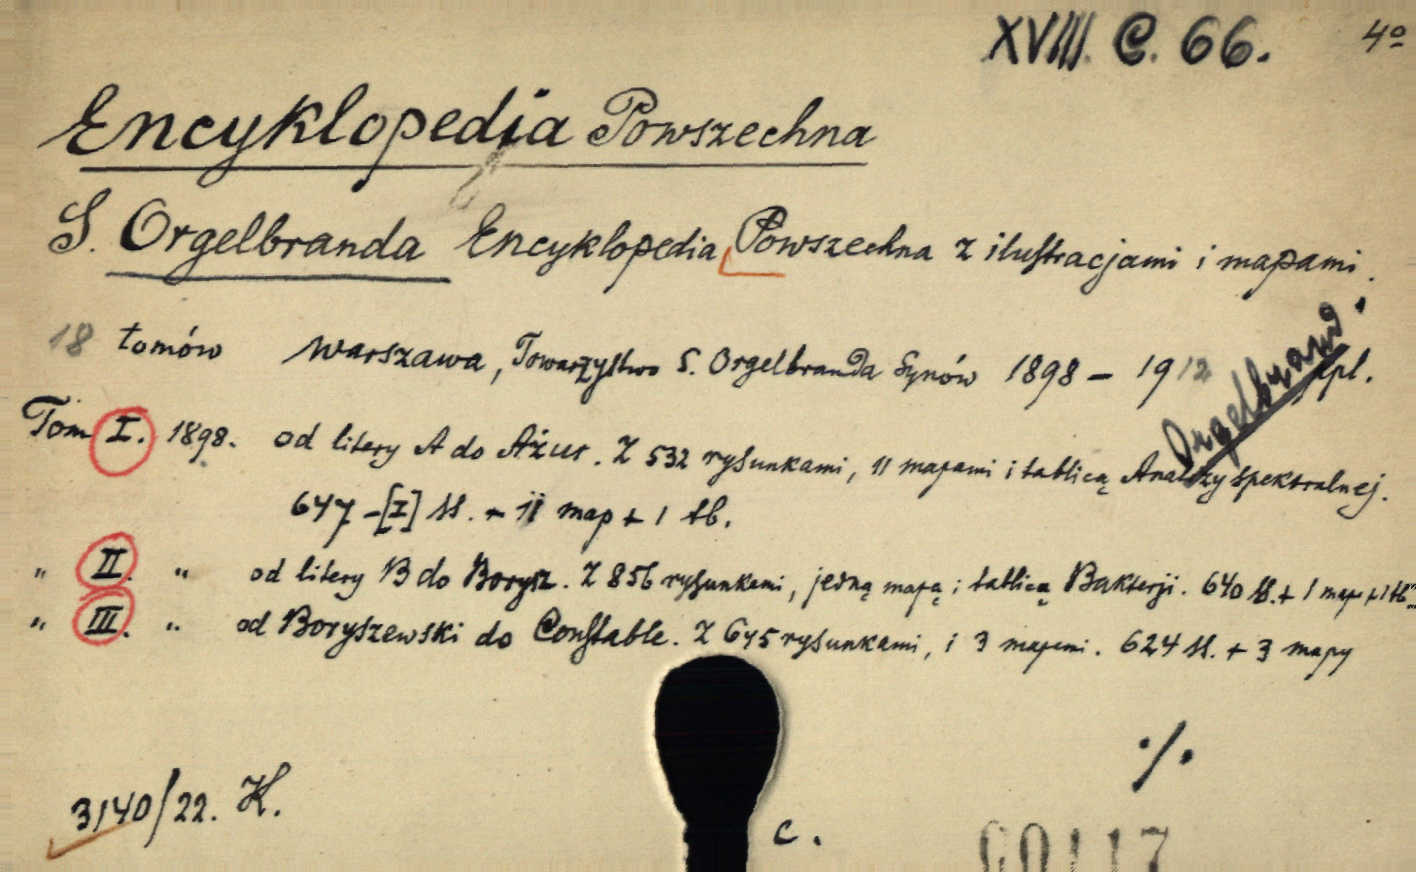 XVIII. C. 66. 4º
Encyklopedia Powszechna
S. Orgelbranda Encyklopedia Powszechna z ilustracjami i mapami.
18 tomów Warszawa, Towarzystwo S. Orgelbranda Synów 1898 – 1912
Orgelbrand
Tom I. 1898. od litery A do Ażur. Z 532 rysunkami, 11 mapami i tablicą Analizy spektralnej.
647 – [I] ss. + 11 map + 1 tb.
„ II. „ od litery B do Borysz. Z 856 rysunkami, jedną mapą i tablicą Bakterji. 640 ss. + 1 mapa + 1 tb.
„ III. „ od Boryszewski do Constable. Z 675 rysunkami, i 3 mapami. 624 ss. + 3 mapy
·/·
3140/22. K.
c.
60117